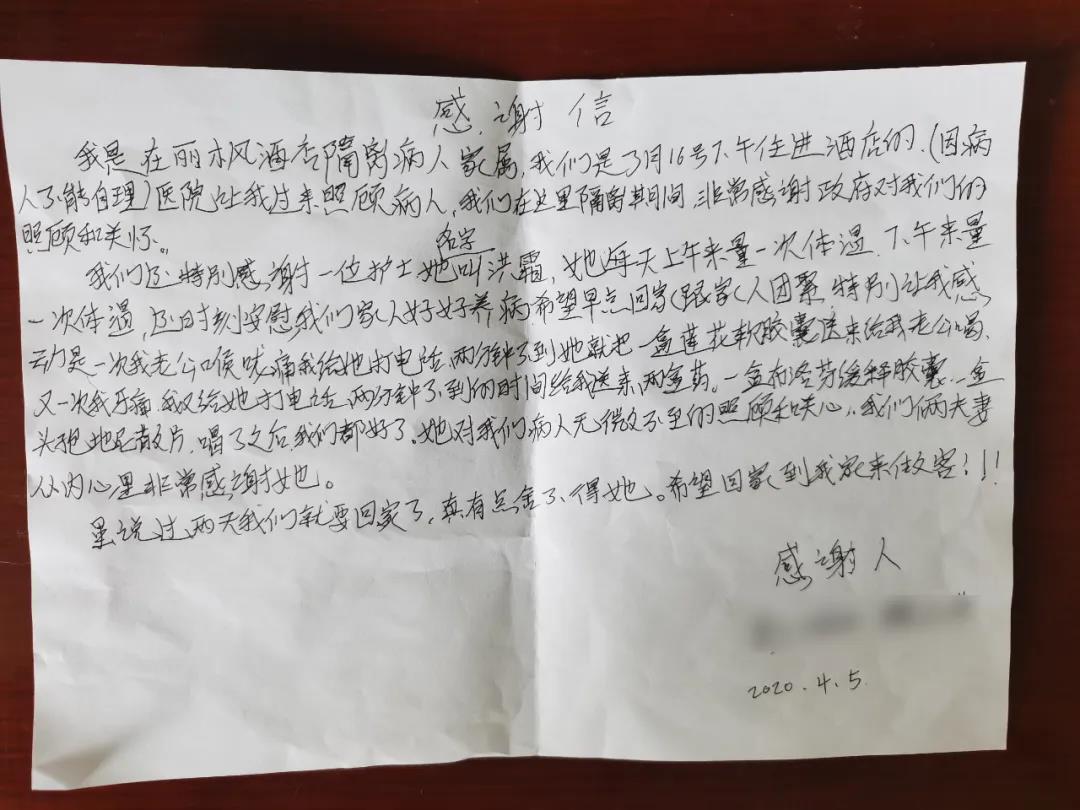 感谢信
我是在丽枫酒店隔离病人家属,我们是3月16号下午住进酒店的,(因病
人不能自理)医院让我过来照顾病人,我们在这里隔离其间,非常感谢政府对我们的
照顾和关怀。
名字
我们还特别感谢一位护士她叫洪霜,她每天上午来量一次体温,下午来量
一次体温,还时刻安慰我们家人好好养病,希望早点回家跟家人团聚,特别让我感
动是一次我老公口侯咙痛我给她打电话,两分钟不到她就把一盒莲花软胶囊送来给我老公喝,
又一次我牙痛,我又给她打电话,两分钟不到的时间给我送来两盒药。一盒布洛芬缓释胶囊,一盒
头孢地尼散片,喝了之后,我们都好了。她对我们病人无微不至的照顾和关心,我们俩夫妻
从内心里非常感谢她。
虽说过两天我们就要回家了,真有点舍不得她。希望回家到我家来做客!!!
感谢人
2020.4.5.